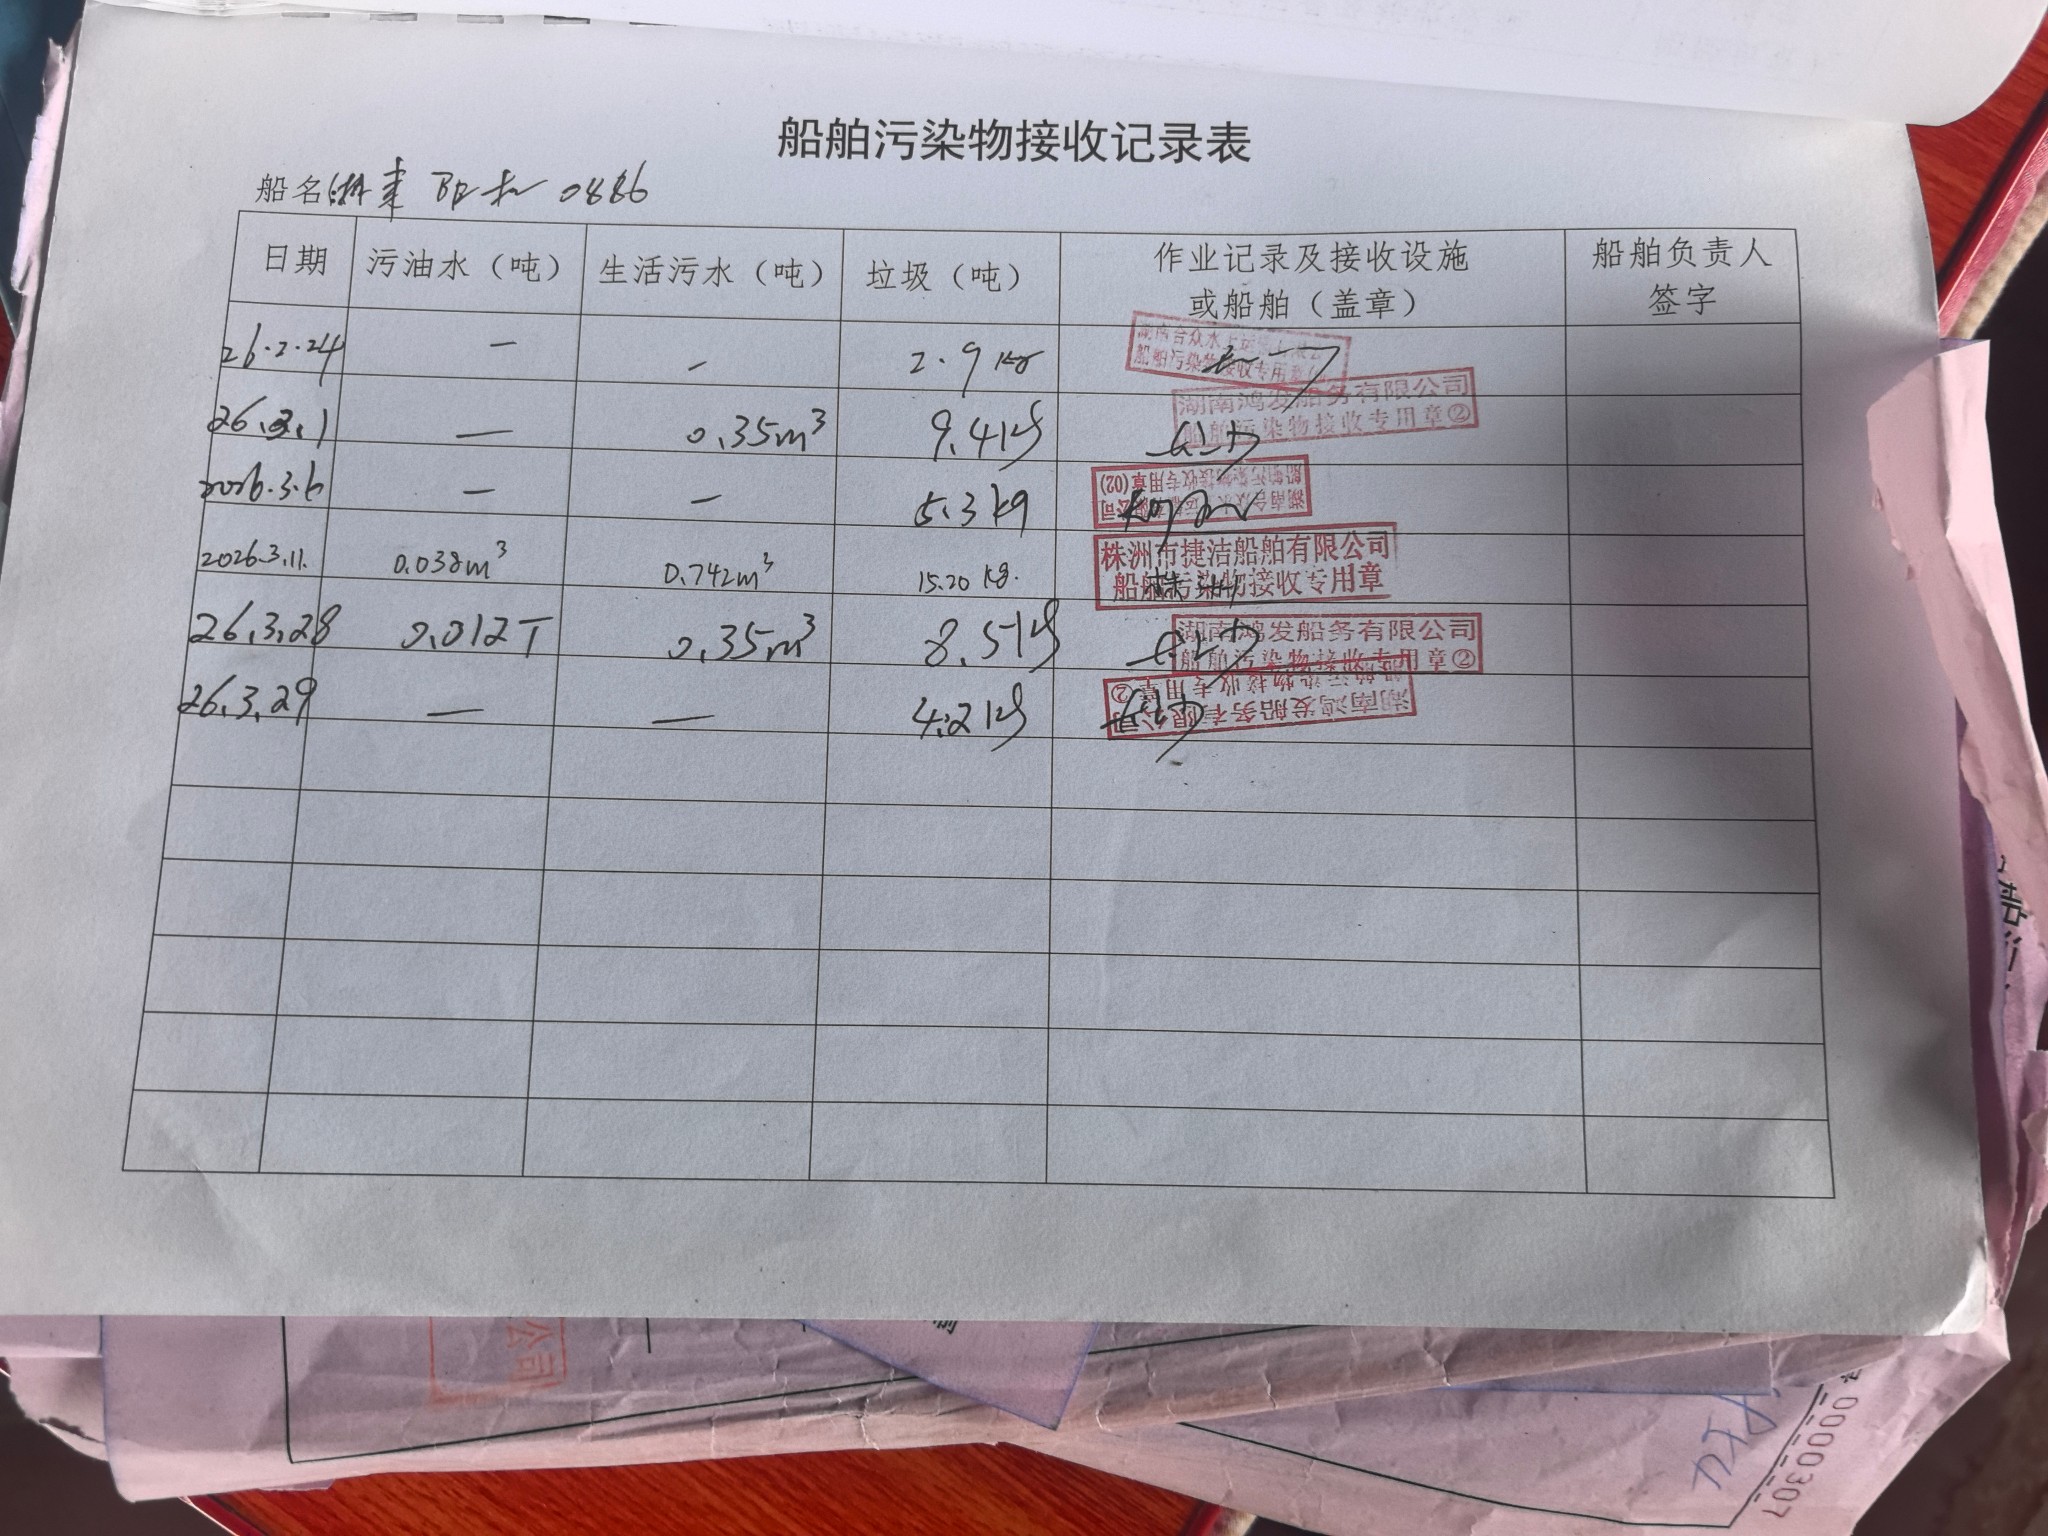 船舶污染物接收记录表
船名 0886
日期 污油水（吨） 生活污水（吨） 垃圾（吨） 作业记录及接收设施或船舶（盖章） 船舶负责人签字
26.2.24 — — 2.9 kg
26.3.1 — 0.35m³ 9.4kg 湖南鸿发船务有限公司 船舶污染物接收专用章②
2026.3.6 — — 5.3 kg 船舶污染物接收专用章(02)
2026.3.11. 0.038m³ 0.742m³ 15.20 kg. 株洲市捷洁船舶有限公司 船舶污染物接收专用章
26.3.28 0.012T 0.35m³ 8.5kg 湖南鸿发船务有限公司 船舶污染物接收专用章②
26.3.29 — — 4.2kg 湖南鸿发船务有限公司 船舶污染物接收专用章②
公司
0000307